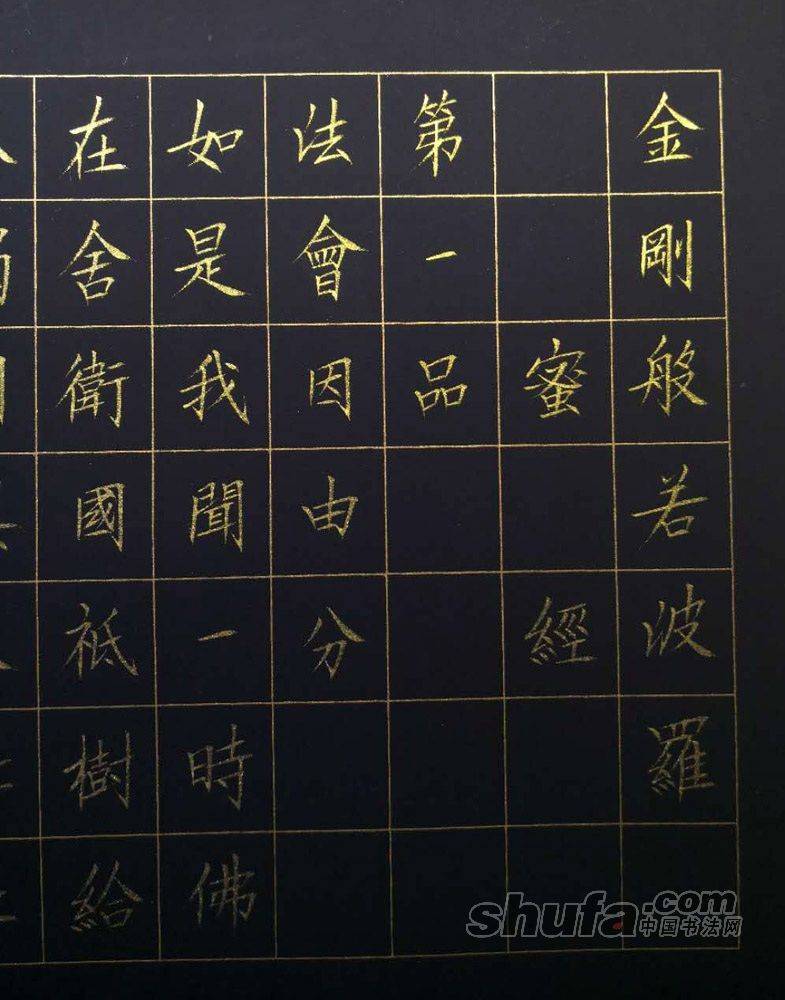 金剛般若波羅
蜜經
第一品
法會因由分
如是我聞一時佛
在舍衛國祇樹給
shufa.com
中国书法网